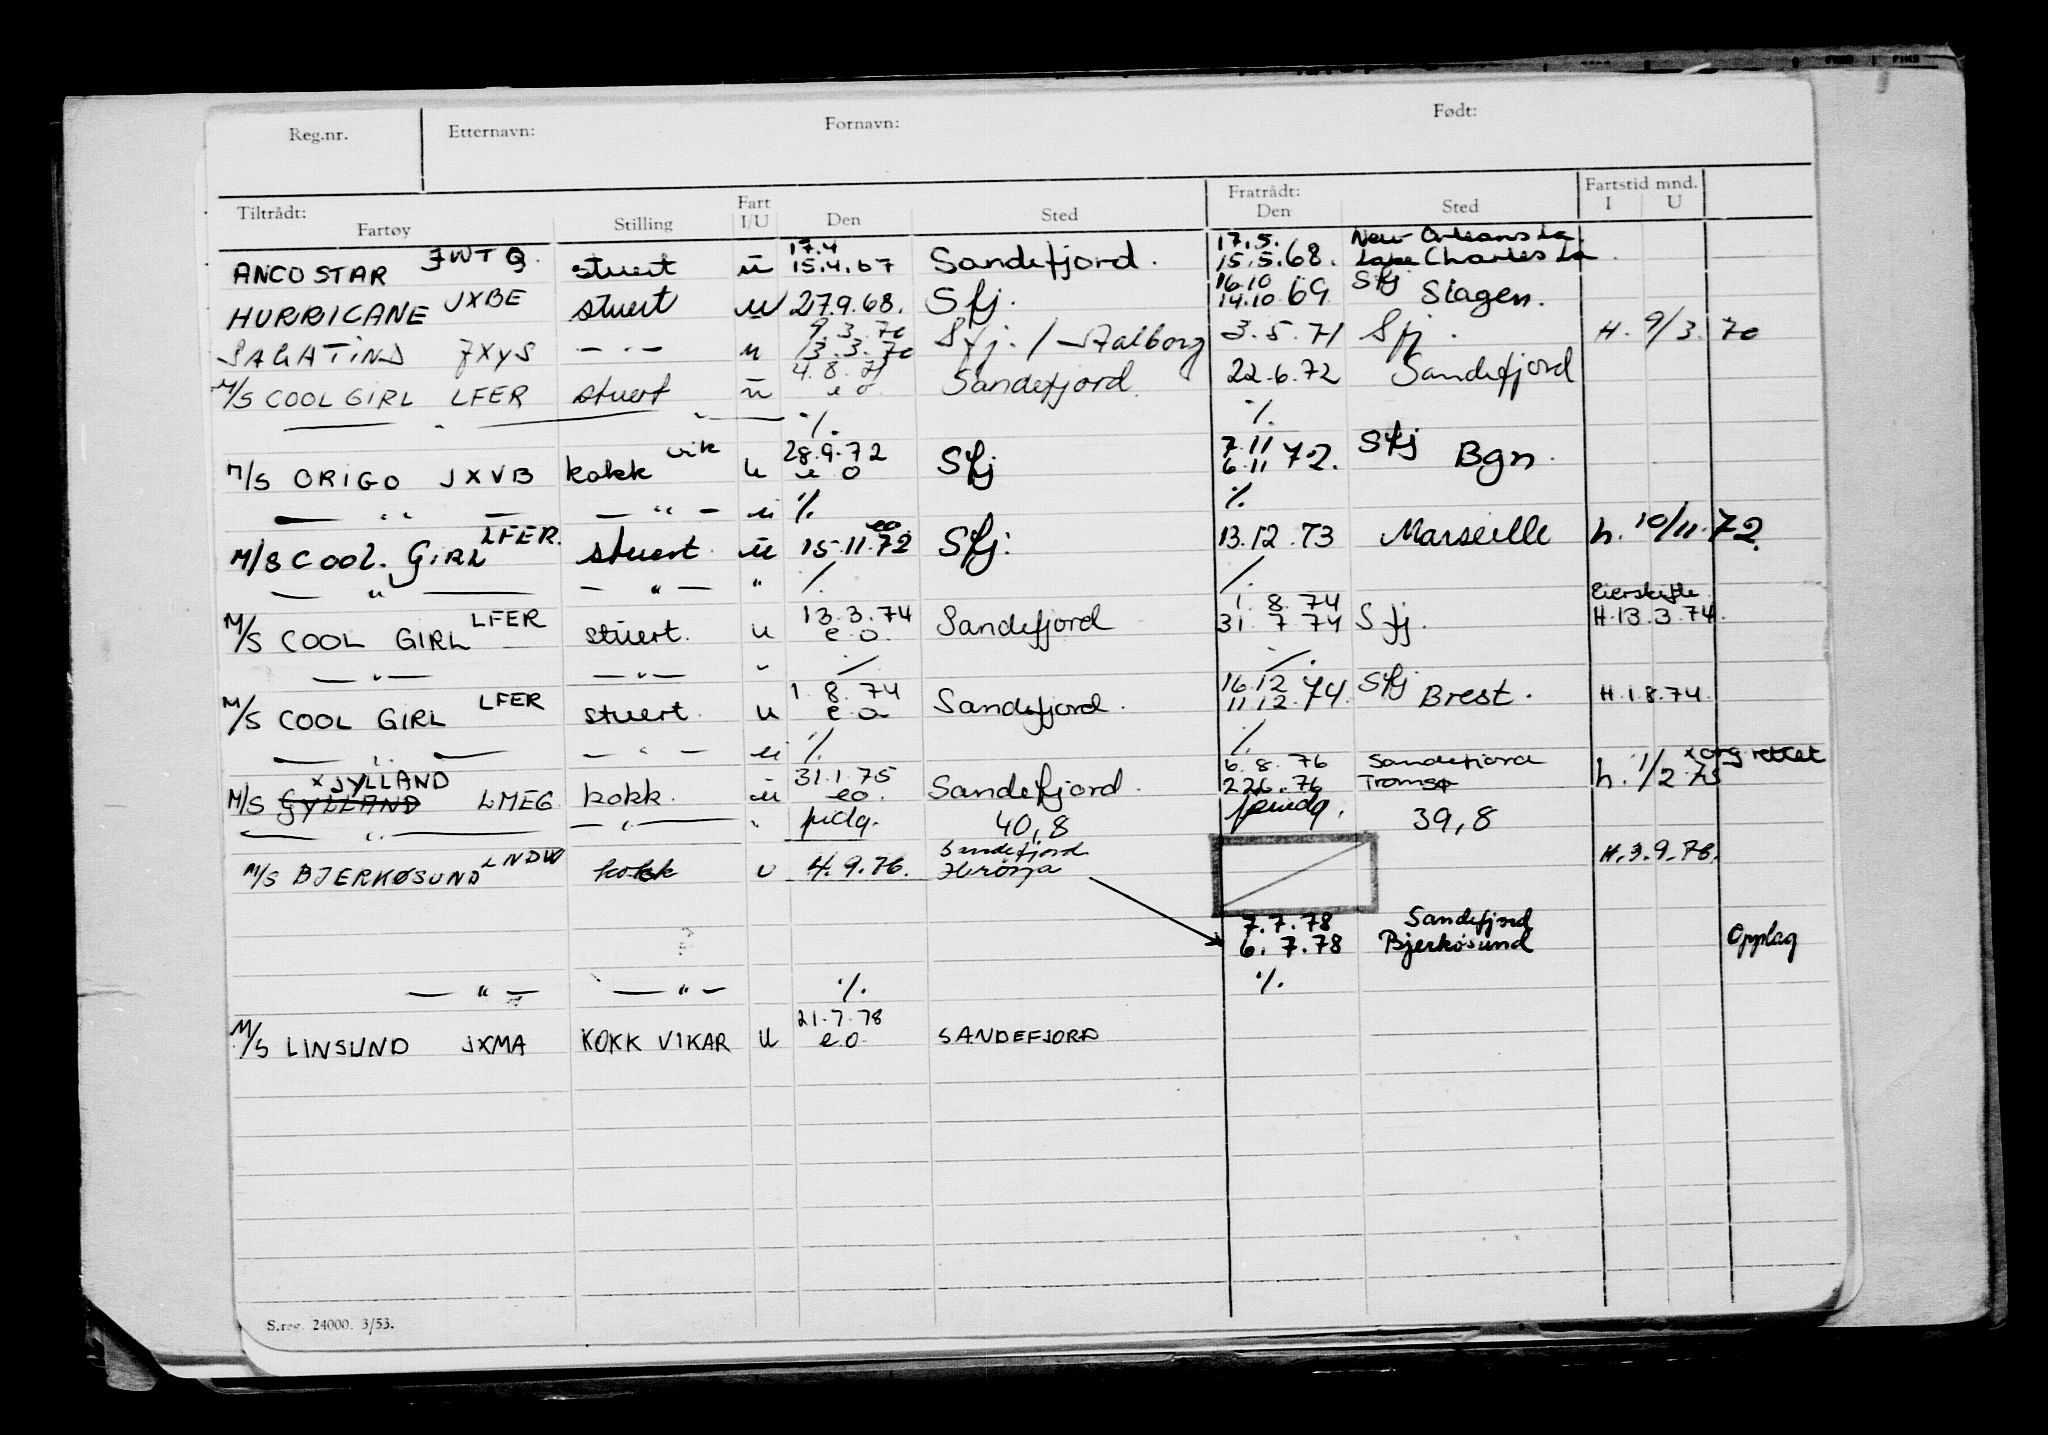 Reg.nr. Etternavn: Fornavn: Født:
Tiltrådt: Fartøy Stilling Fart I/U Den Sted Fratrådt: Den Sted Fartstid mnd. I U
17.4 17.5. New Orleans La.
ANCO STAR JWTQ stuert u 15.4.67 Sandefjord. 15.5.68. Lake Charles La
16.10 Sfj
HURRICANE JXBE stuert u 27.9.68. Sfj. 14.10 69 Slagen.
9.3.70
SAGATIND JXYS — " — u 13.3.70 Sfj. / Aalborg 3.5.71 Sfj. H. 9/3.70
4.8.71
M/S COOL GIRL LFER stuert u e o Sandefjord 22.6.72 Sandefjord
— " — " — ٪. ٪.
vik 28.9.72 7.11 Sfj
M/S ORIGO JXVB kokk u e o Sfj 6.11 72. Bgn.
— " — — " — u ٪. ٪.
LFER. eo
M/S COOL. GIRL stuert. u 15.11.72 Sfj. 13.12.73 Marseille h. 10/11.72.
— " — — " — " ٪. ٪.
LFER 13.3.74 1.8.74 Eierskifte
M/S COOL GIRL stuert. u e o. Sandefjord 31.7 74 Sfj. H.13.3.74.
— " — — " — " ٪ ٪.
LFER 1.8.74 16.12 Sfj
M/S COOL GIRL stuert. u e o Sandefjord. 11.12.74. Brest. H.1.8.74.
— " — — " — u ٪. ٪.
x JYLLAND 31.1.75 6.8.76 Sandefjord x org rettet
M/S GYLLAND LMEG kokk. u eo. Sandefjord. 22.6.76 Tromsø h. 1/2 75
— " — — " — " 40,8 39,8
LNDW Sandefjord
M/S BJERKØSUND kokk u 4.9.76. Herøya H.3.9.76.
7.7.78 Sandefjord
6.7.78 Bjerkøsund Opplag
— " — — " — ٪. ٪.
21.7.78
M/S LINSUND JXMA KOKK VIKAR U e o. SANDEFJORD
S.reg. 24000. 3/53.